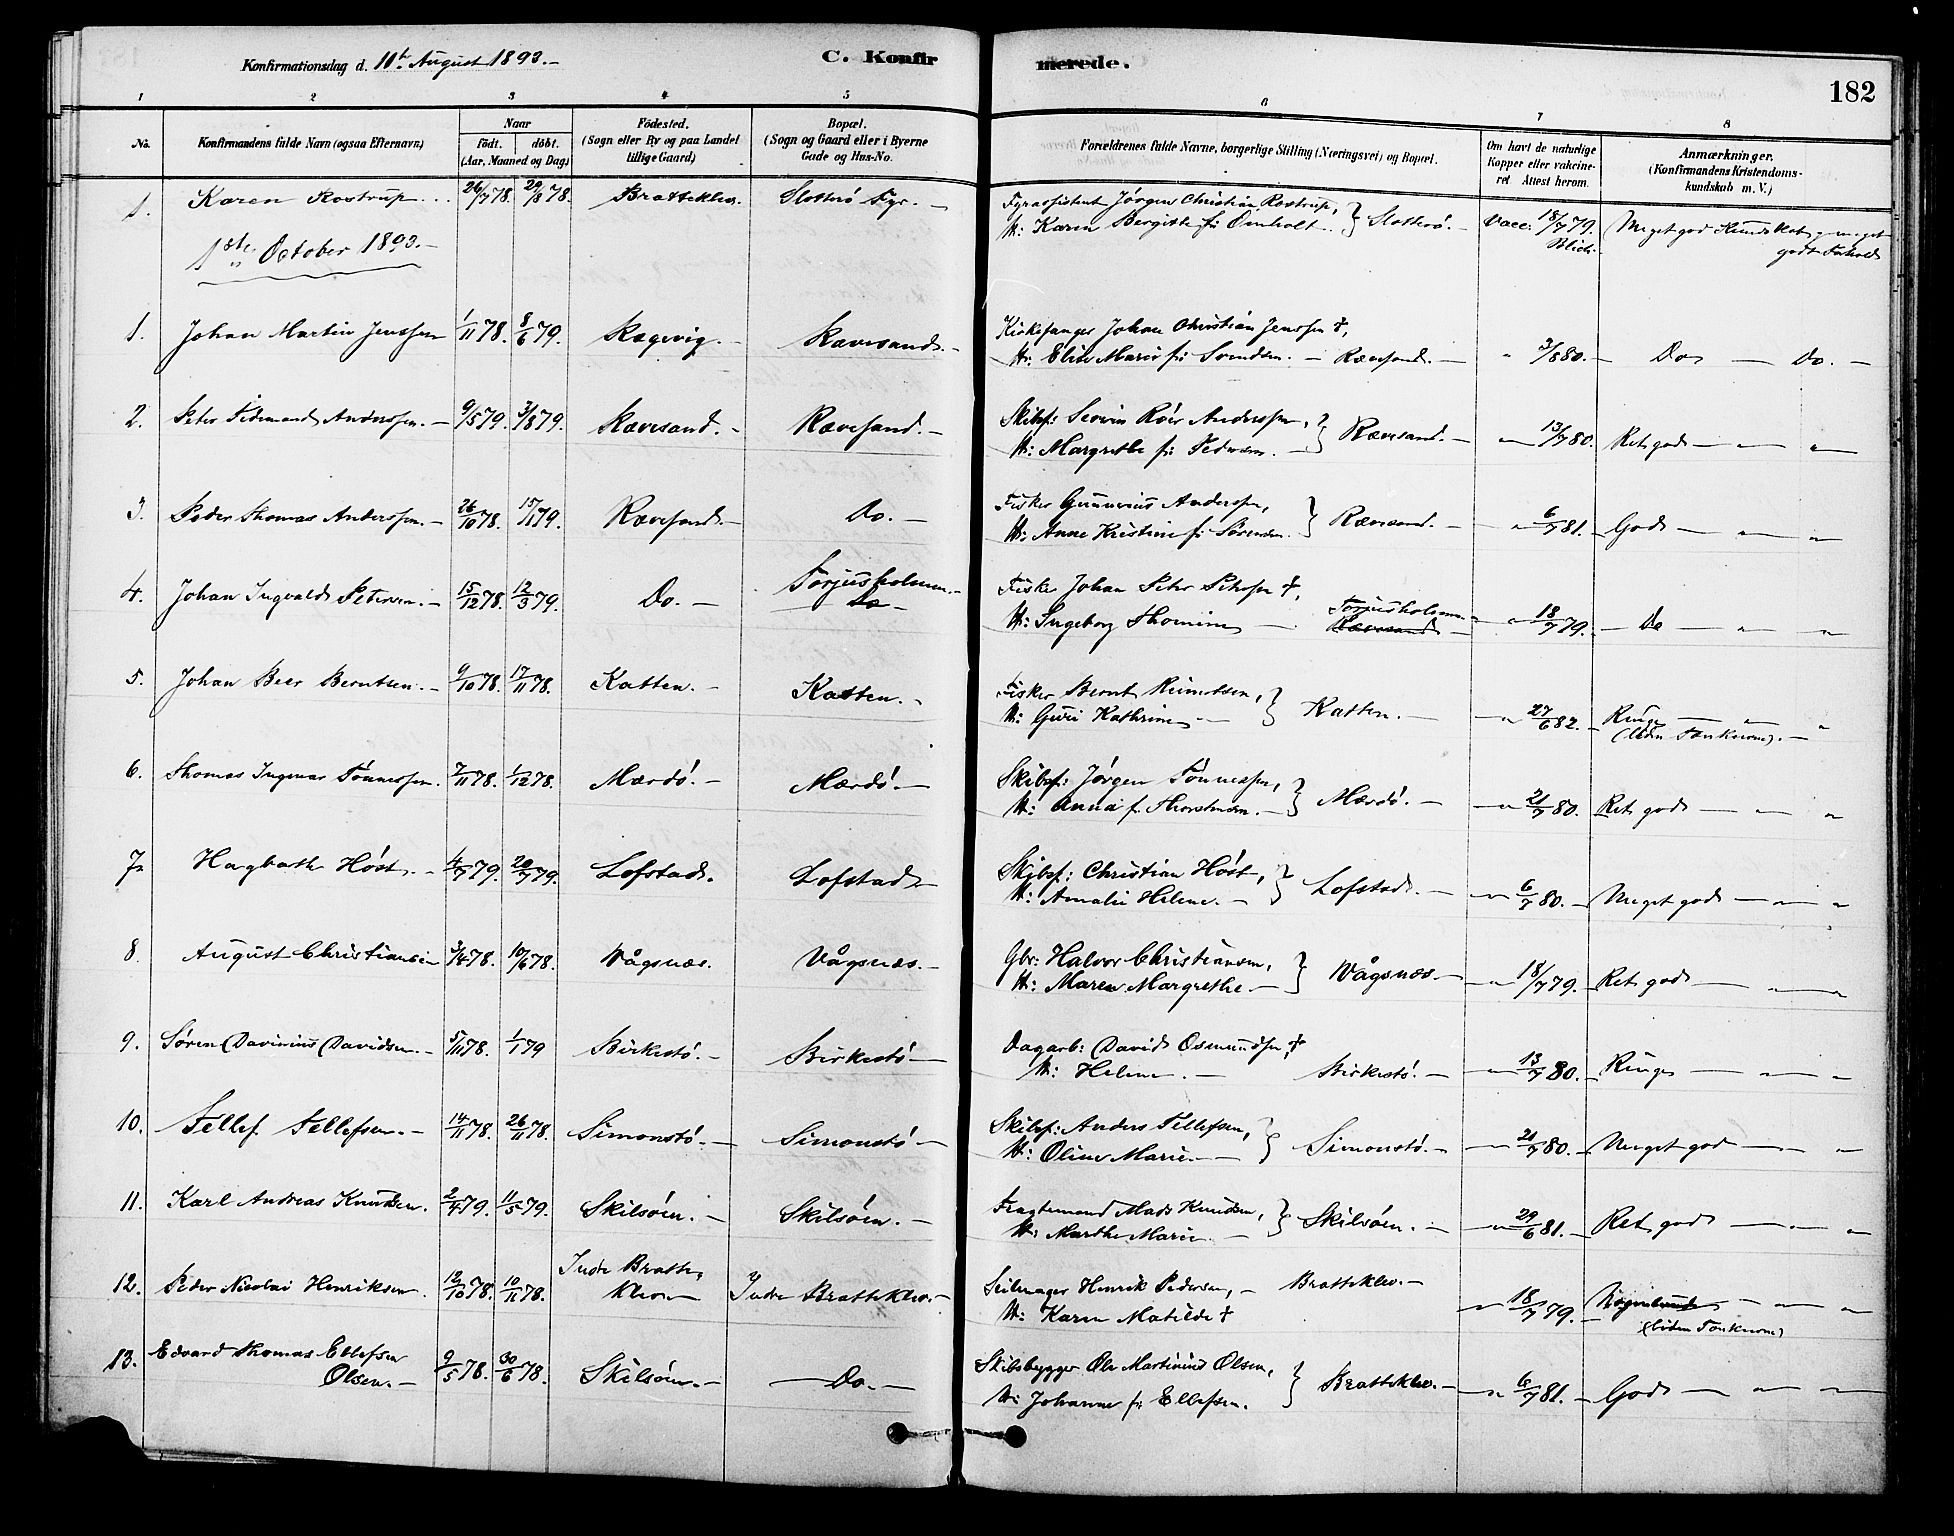 Konfirmationsdag d. 11te August 1893.-
C. Konfir
merede.
182
1 2 3 4 5 6 7 8
No. Konfirmandens fulde Navn (ogsaa Efternavn) Naar Födested. Bopæl. Forældrenes fulde Navne, borgerlige Stilling (Næringsvei) og Bopæl. Om havt de naturlige Anmærkninger.
födt. döbt. (Sogn eller By og paa Landet (Sogn og Gaard eller i Byerne Kopper eller vakcine- (Konfirmandens Kristendoms-
(Aar, Maaned og Dag) tillige Gaard) Gade og Hus-No. ret Attest herom. kundskab m. V.)
1. Karen Rostrup 26/7 78. 29/8 78. Bratteklev. Slotterö Fyr.- Fyrassistent Jörgen Christian Rostrup, Slotterö.- Vacc: 18/7 79. Meget god Kundskab, meget
H: Karen Bergitte f: Omholt.- godt Forhold
1ste October 1893.-
1. Johan Martin Jenssen 1/11 78. 8/6 79. Kægevig.- Rævesand.- Kirkesanger Johan Christian Jenssen †,
H: Elise Marie f: Svendsen.- Rævesand.- 3/8 80.- Do Do.-
2. Peter Ferdinand Anderssen.- 9/5 79. 3/8 79. Rævesand.- Rævesand.- Skibsf: Severin Röer Anderssen, Rævesand.- 13/7 80. Ret god
H: Margrethe f: Pedersen.-
3. Peder Thomas Anderssen.- 26/10 78. 15/11 79. Rævesand.- Do.- Fisker Gunerius Anderssen, Rævesand.- 6/7 81. God
H: Anne Kristine f: Sörensen.
4. Johan Ingvald Petersen.- 15/12 78. 12/3 79. Do.- Torjusholmen.- Fisker Johan Peter Petersen †,
Do-
H: Ingeborg Thomine Torjusholmen- 18/7 79. Do
Rævesand
5. Johan Beer Berntsen.- 9/10 78. 17/11 78. Katten.- Katten.- Fisker Bernt Reinertsen, Katten.- 27/6 82. Ringe
H: Guri Kathrine (liden Tænkeevne).-
6. Thomas Ingemar Tönnessen. 7/11 78. 1/12 78. Mærdö.- Mærdö.- Skibsf: Jörgen Tönnessen, Mærdö.- 21/7 80. Ret god
H: Anna f: Thorstensen.-
7. Hagbarth Höst.- 4/7 79. 20/7 79. Lofstad. Lofstad Skibsf: Christian Höst, Lofstad.- 6/7 80. Meget god
H: Amalie Helene.-
8. August Christiansen 3/4 78. 10/6 78. Vågsnæs. Vågsnæs.- Gbr: Halvor Christiansen, Vågsnæs- 18/7 79. Ret god
H: Maren Margrethe.-
9. Sören Davinius Davidsen.- 5/11 78. 1/1 79 Birkestö.- Birkestö Dagarb: David Osmundsen †
H: Helene.- Birkestö.- 13/7 80. Ringe
10. Tellef Tellefsen.- 14/11 78. 26/11 78. Simonstö.- Simonstö- Skibsf: Anders Tellefsen, Simonstö.- 21/7 80. Meget god
H: Oline Marie.-
11. Karl Andreas Knudsen. 2/4 79. 11/5 79. Skilsöen.- Skilsöen.- Fragtemand Mads Knudsen, Skilsöen.- 29/6 81. Ret god
H: Marthe Marie.-
12. Peder Nicolai Henriksen. 12/10 78. 10/11 78. Indre Bratte- Indre Bratteklev.- Seilmager Henrik Pedersen,- Bratteklev.-
klev- H: Karen Matilde † 18/7 79.
(liden Tænkeevne)
13. Edvard Thomas Ellefsen 9/5 78. 30/6 78. Skilsöen.- Do.- Skibsbygger Ole Martinius Olsen, Bratteklev.- 6/7 81. God
Olsen.- H: Johanne f: Ellefsen.